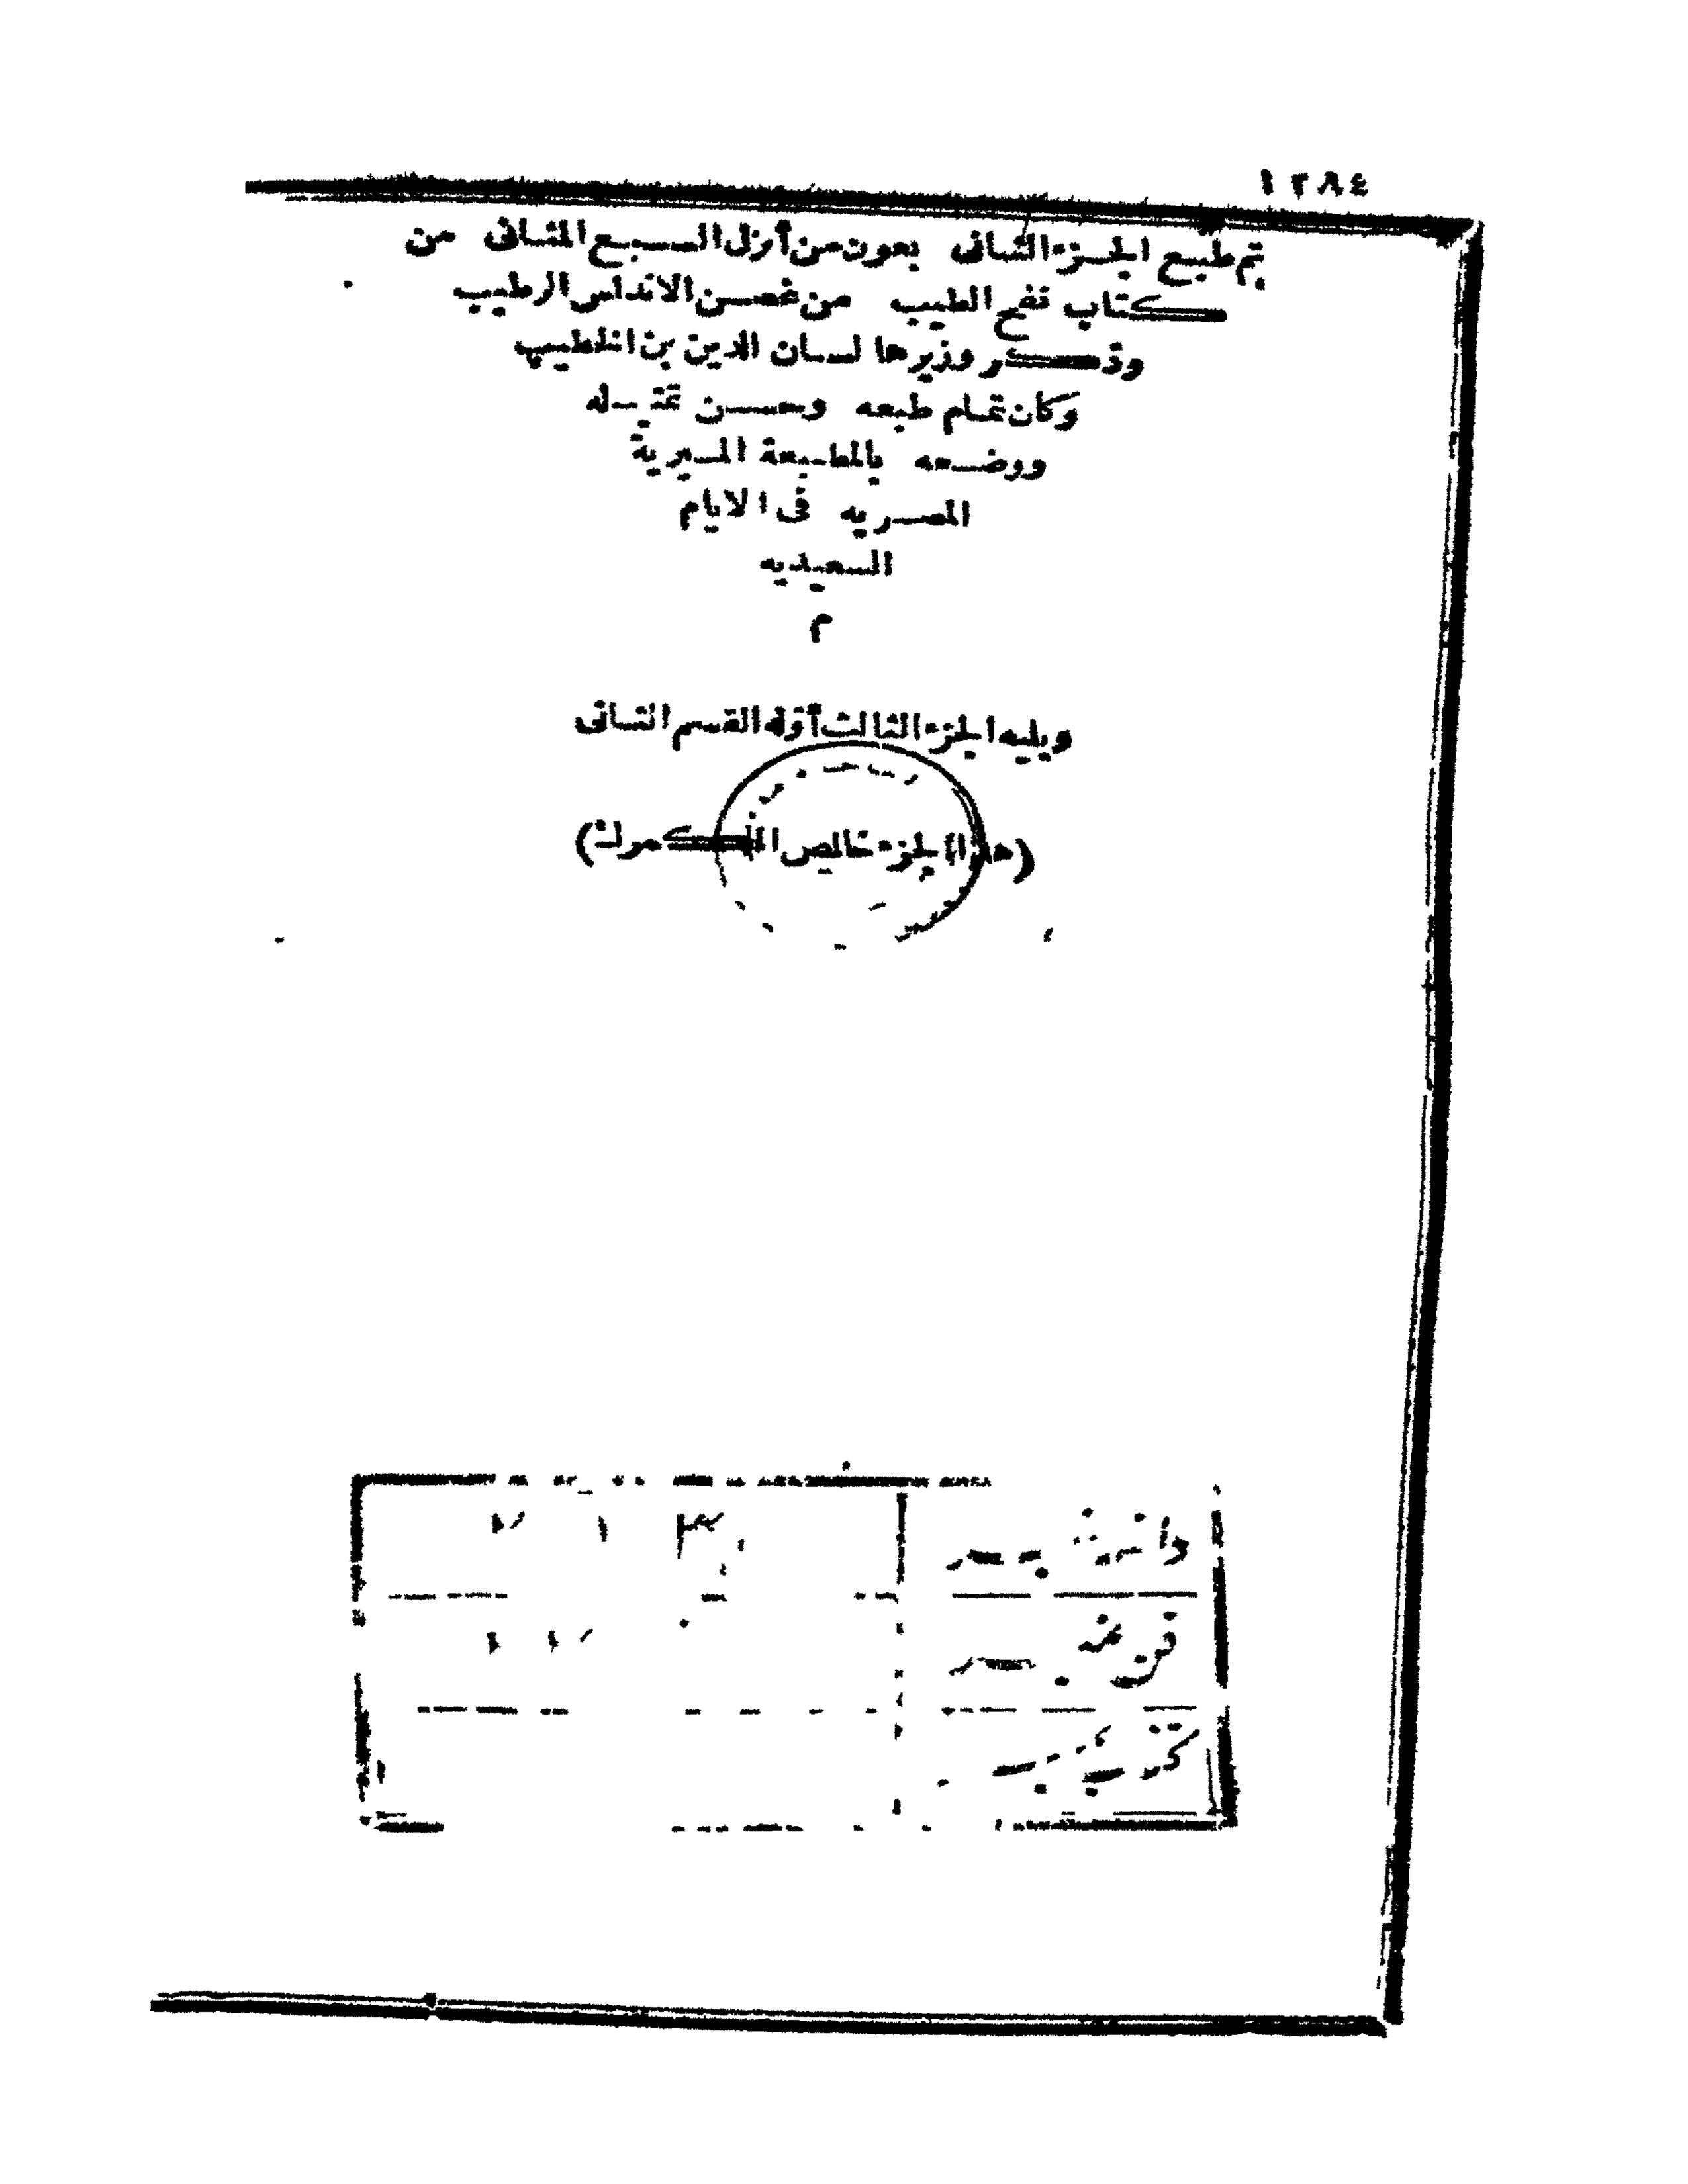 ١٣٨٤
تم طبع الجزء الثانى بعون من أنزل السبع المثانى من
كتاب نفح الطيب من غصن الاندلس الرطيب
وذكر وزيرها لسان الدين بن الخطيب
وكان تمام طبعه وحسن تمثيله
ووضعه بالمطبعة الميرية
المصريه فى الايام
السعيديه
م
ويليه الجزء الثالث أوّله القسم الثانى
(هذا الجزء خالص الكمرك)